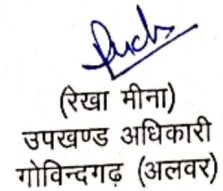 (रेखा मीना)
उपखण्ड अधिकारी
गोविन्दगढ़ (अलवर)